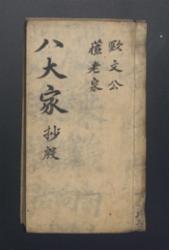 歐文公
蘓老泉
八大家抄殿